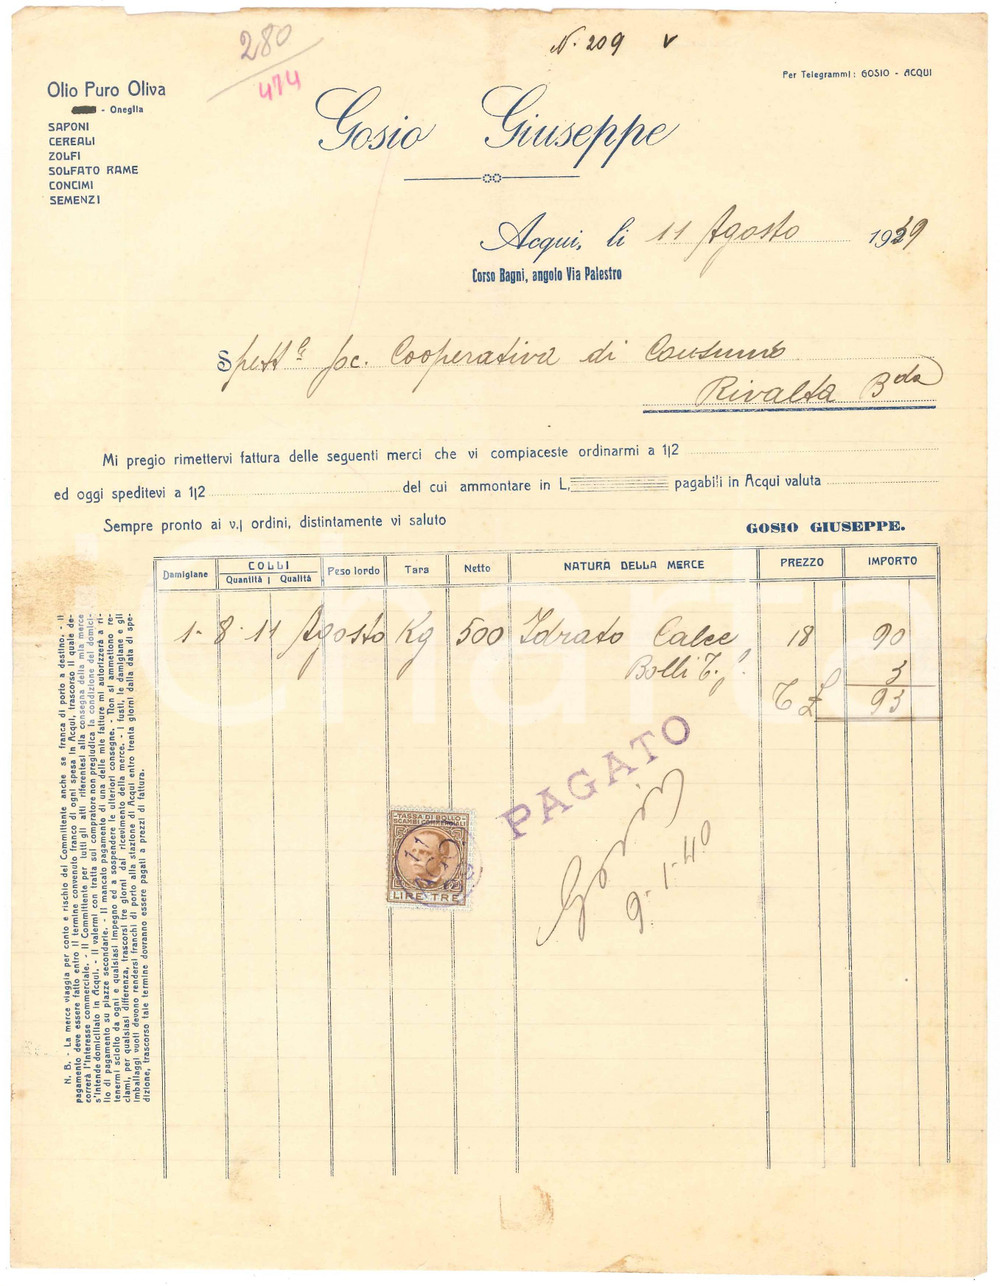 280
474
N. 209 v
Per Telegrammi: GOSIO - ACQUI
Olio Puro Oliva
- Oneglia
SAPONI
CEREALI
ZOLFI
SOLFATO RAME
CONCIMI
SEMENZI
Gosio Giuseppe
Acqui, li 11 Agosto 1939
Corso Bagni, angolo Via Palestro
Spett.le Soc. Cooperativa di Consumo
Rivalta B.da
Mi pregio rimettervi fattura delle seguenti merci che vi compiaceste ordinarmi a 1|2
ed oggi speditevi a 1|2 del cui ammontare in L, pagabili in Acqui valuta
Sempre pronto ai v.| ordini, distintamente vi saluto
GOSIO GIUSEPPE.
Damigiane COLLI Quantità Qualità Peso lordo Tara Netto NATURA DELLA MERCE PREZZO IMPORTO
1 - 8 - 11 Agosto Kg 500 Idrato Calce 18 90
Bolli T. 3
T £ 93
PAGATO
Gosio
9-1-40
TASSA DI BOLLO
SCAMBI COMMERCIALI
LIRE TRE
N. B. - La merce viaggia per conto e rischio del Committente anche se franca di porto a destino. - Il
pagamento deve essere fatto entro il termine convenuto franco di ogni spesa in Acqui, trascorso il quale de-
correrà l'interesse commerciale. - Il Committente per tutti gli atti riferentesi alla consegna della mia merce
s'intende domiciliato in Acqui. - Il valermi con tratta sul compratore non pregiudica la condizione del domici-
lio di pagamento su piazze secondarie. - Il mancato pagamento di una delle mie fatture mi autorizzerà a ri-
tenermi sciolto da ogni e qualsiasi impegno ed a sospendere le ulteriori consegne. - Non si ammettono re-
clami, per qualsiasi differenza, trascorsi tre giorni dal ricevimento della merce. - I fusti, le damigiane e gli
imballaggi vuoti devono rendersi franchi di porto alla stazione di Acqui entro trenta giorni dalla data di spe-
dizione, trascorso tale termine dovranno essere pagati a prezzi di fattura.